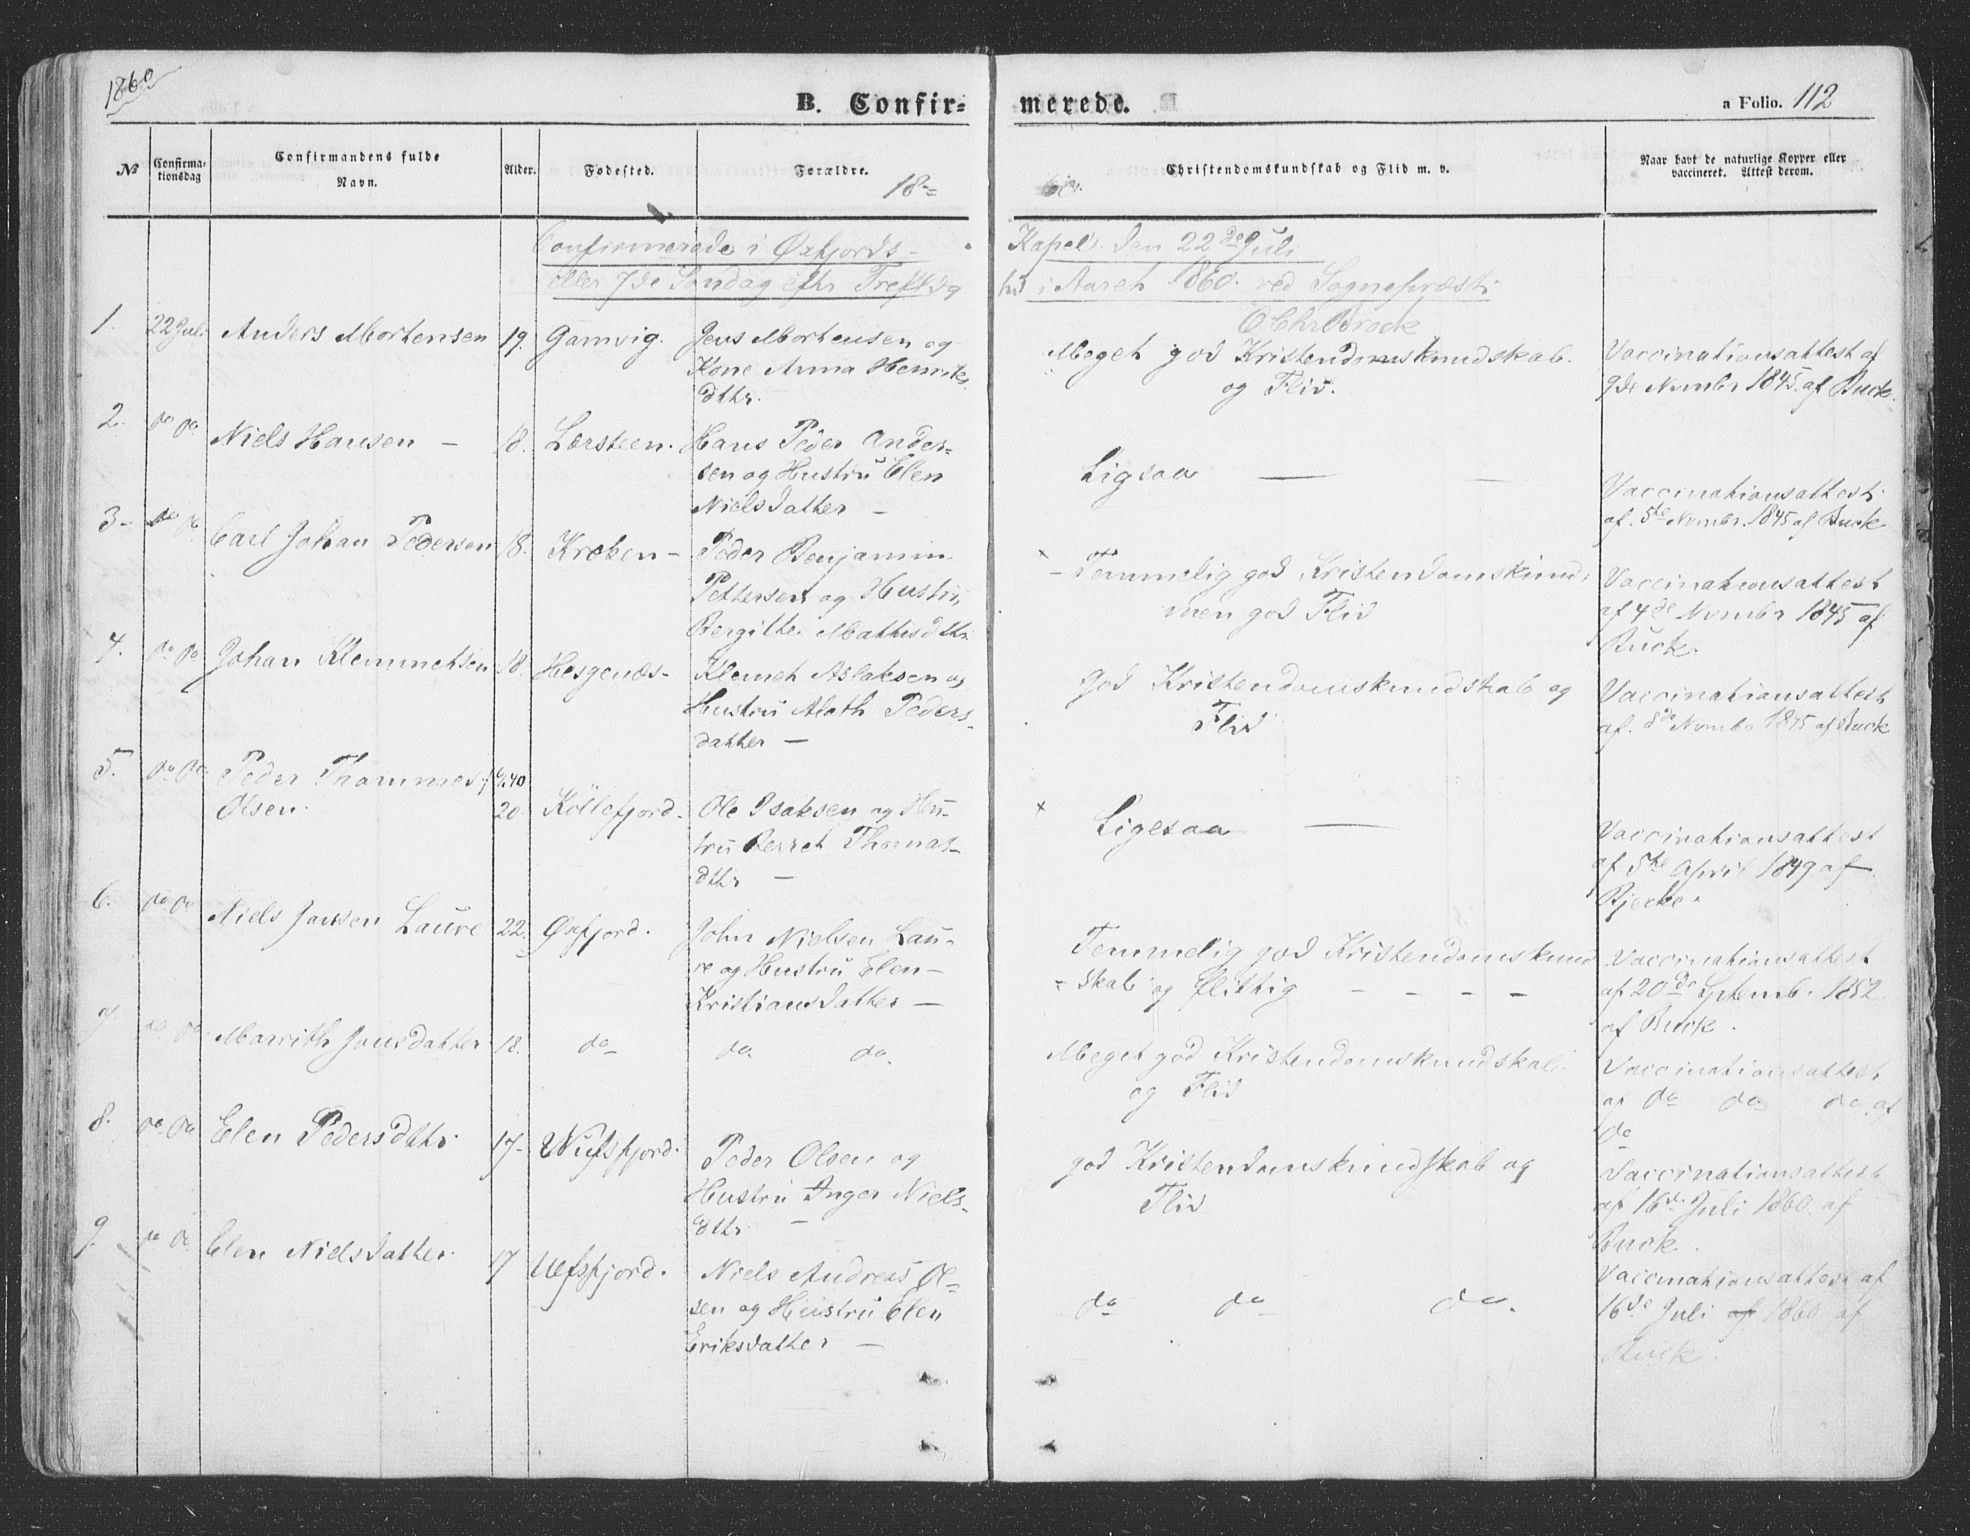 1860
B. Confir=
merede.
a Folio. 112
№
Confirma-
tionsdag
Confirmandens fulde
Navn.
Alder.
Fødested.
Forældre.
18-
60.
Christendomskundskab og Flid m. v.
Naar havt de naturlige Kopper eller
vaccineret. Attest derom.
Confirmerede i Øxfjords-
Kapel. den 22de Juli
eller 7de Søndag efter Trefldig
hd i Aaret 1860. ved Sognepræst
O Chr Brock
1. 22 Juli Anders Mortensen 19. Gamvig.
Jens Mortensen og
Kone Anna Henriks
dttr.
Meget god Kristendomskundskab.
og Flid.
Vaccinationsattest af
9de Novmbr 1845. af Buck.
2. do do Niels Hansen - 18. Lærsteen.
Hans Peder Ander-
sen og Hustru Elen
Nielsdatter -
Ligsaa
Vaccinationsattest
af. 5te Novmbr. 1845 af Buck
3- do do Carl Johan Pedersen 18. Kroken-
Peder Benjamin
Pettersen og Hustru
Bergitte. Mathisdttr.
× - Temmelig god Kristendomskund.
men god Flid
Vaccinationsattest
af 4de Novmbr 1845 af
Buck.
4. do do Johan Klemmetsen 18. Hesgenæs-
Klemet Aslaksen og
Hustru Marith Peders-
datter -
God Kristendomskundskab og
Flid
Vaccinationsattest
af. 8de Novmbr 1845 af Buck
5. do do Peder Thommes
Olsen. 20. Köllefjord.
Ole Isaksen og Hu-
tru Berret Thomas-
dttr -
× Ligesaa
Vaccinationsattest
af 5te April 1849 af
Bjecke.
6. do do Niels Jonsen Laure 22. Øxfjord.
John Nielsen Lau-
re og Hustru Elen-
Kristiansdatter -
Temmelig god Kristendomskund
= skab og flittig - - - -
Vaccinationsattest
af 20de Septemb. 1852
af Buck.
7 do do Marrith Jonsdatter 18. do do. do.
Meget god Kristendomskundskab
og Flid
Vaccinationsattest
af do do do. af
do
8. do do Elen Pedersdttr 17-
Peder Olsen og
Hustru Inger Niels-
dttr. -
god Kristendomskundskab og
Flid
Vaccinationsattest
af 16de Juli 1860 af
Buck.
9. do do Elen Nielsdatter. 17 Uefsfjord.
Niels Andreas Ol-
sen og Hustru Elen
Eriksdatter -
do do do.
Vaccinationsattest af
16de Juli af 1860 af
Buck.